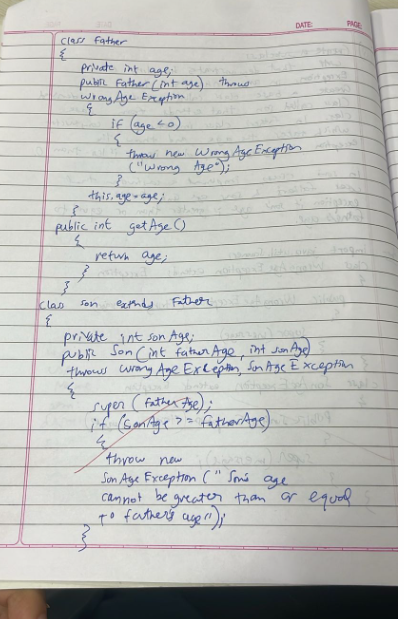 DATE: PAGE:
class Father
{
private int age;
public Father (int age) throws
WrongAge Exception
{
if (age < 0)
{
throw new WrongAgeException
("Wrong Age");
}
this.age = age;
}
public int getAge ()
{
return age;
}
}
class Son extends Father
{
private int sonAge;
public Son (int fatherAge, int sonAge)
throws WrongAge Exception, SonAge Exception
{
super (fatherAge);
if (sonAge >= fatherAge)
{
throw new
SonAge Exception (" Son's age
cannot be greater than or equal
to father's age");
}